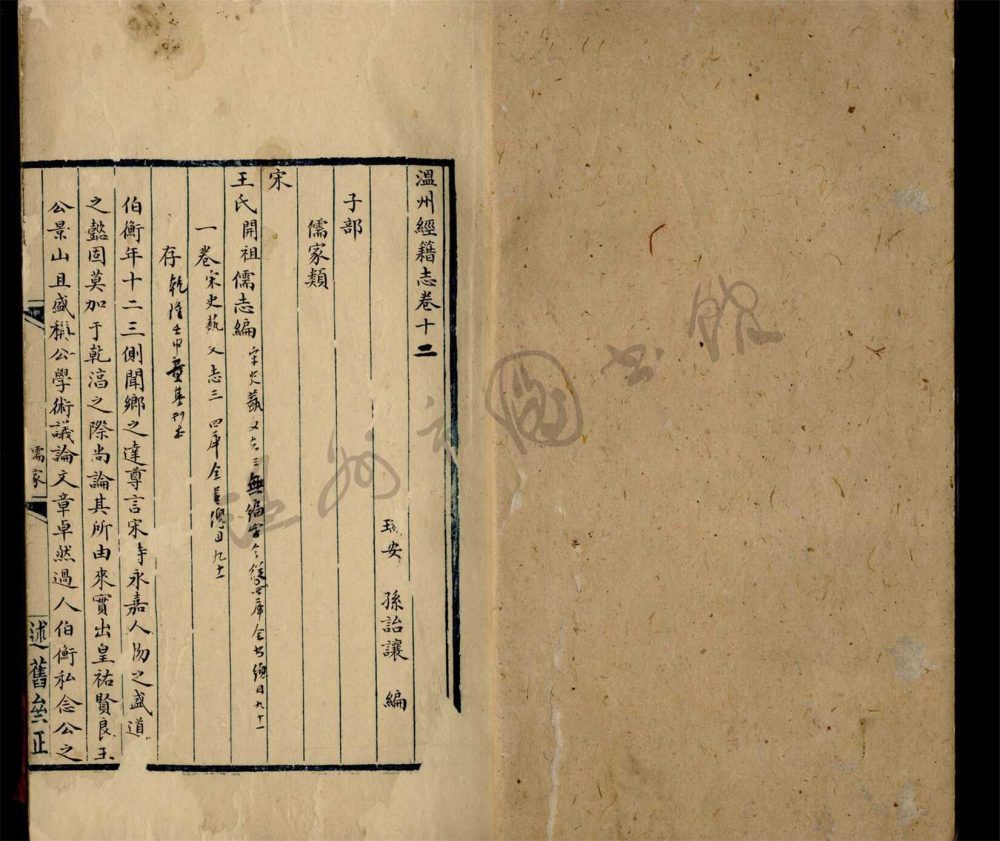 溫州經籍志卷十二
瑞安 孫詒讓 編
子部
儒家類
宋
王氏開祖儒志編宋史藝文志三無編字今從四庫全書總目九十一
一卷宋史藝文志三 四庫全書總目九十一
存乾隆壬申
伯衡年十二三側聞鄉之達尊言宋時永嘉人物之盛道
之懿固莫加于乾淳之際尚論其所由來實出皇祐賢良王
公景山且盛稱公學術議論文章卓然過人伯衡私念公之
儒家
述舊
溫州市圖書館